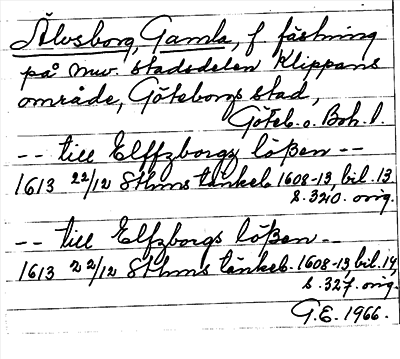 Älvsborg, Gamla, f fästning
på nuv. stadsdelen Klippans
område, Göteborgs stad,
Göteb. o. Boh. l.
-- till Elffzborgz lößen --
1613 22/12 Sthms tänkeb. 1608-13, bil. 13
s. 320. orig.
-- till Elfzborgs lößen --
1613 22/12 Sthms tänkeb. 1608-13, bil. 14,
s. 327. orig.
G.E. 1966.